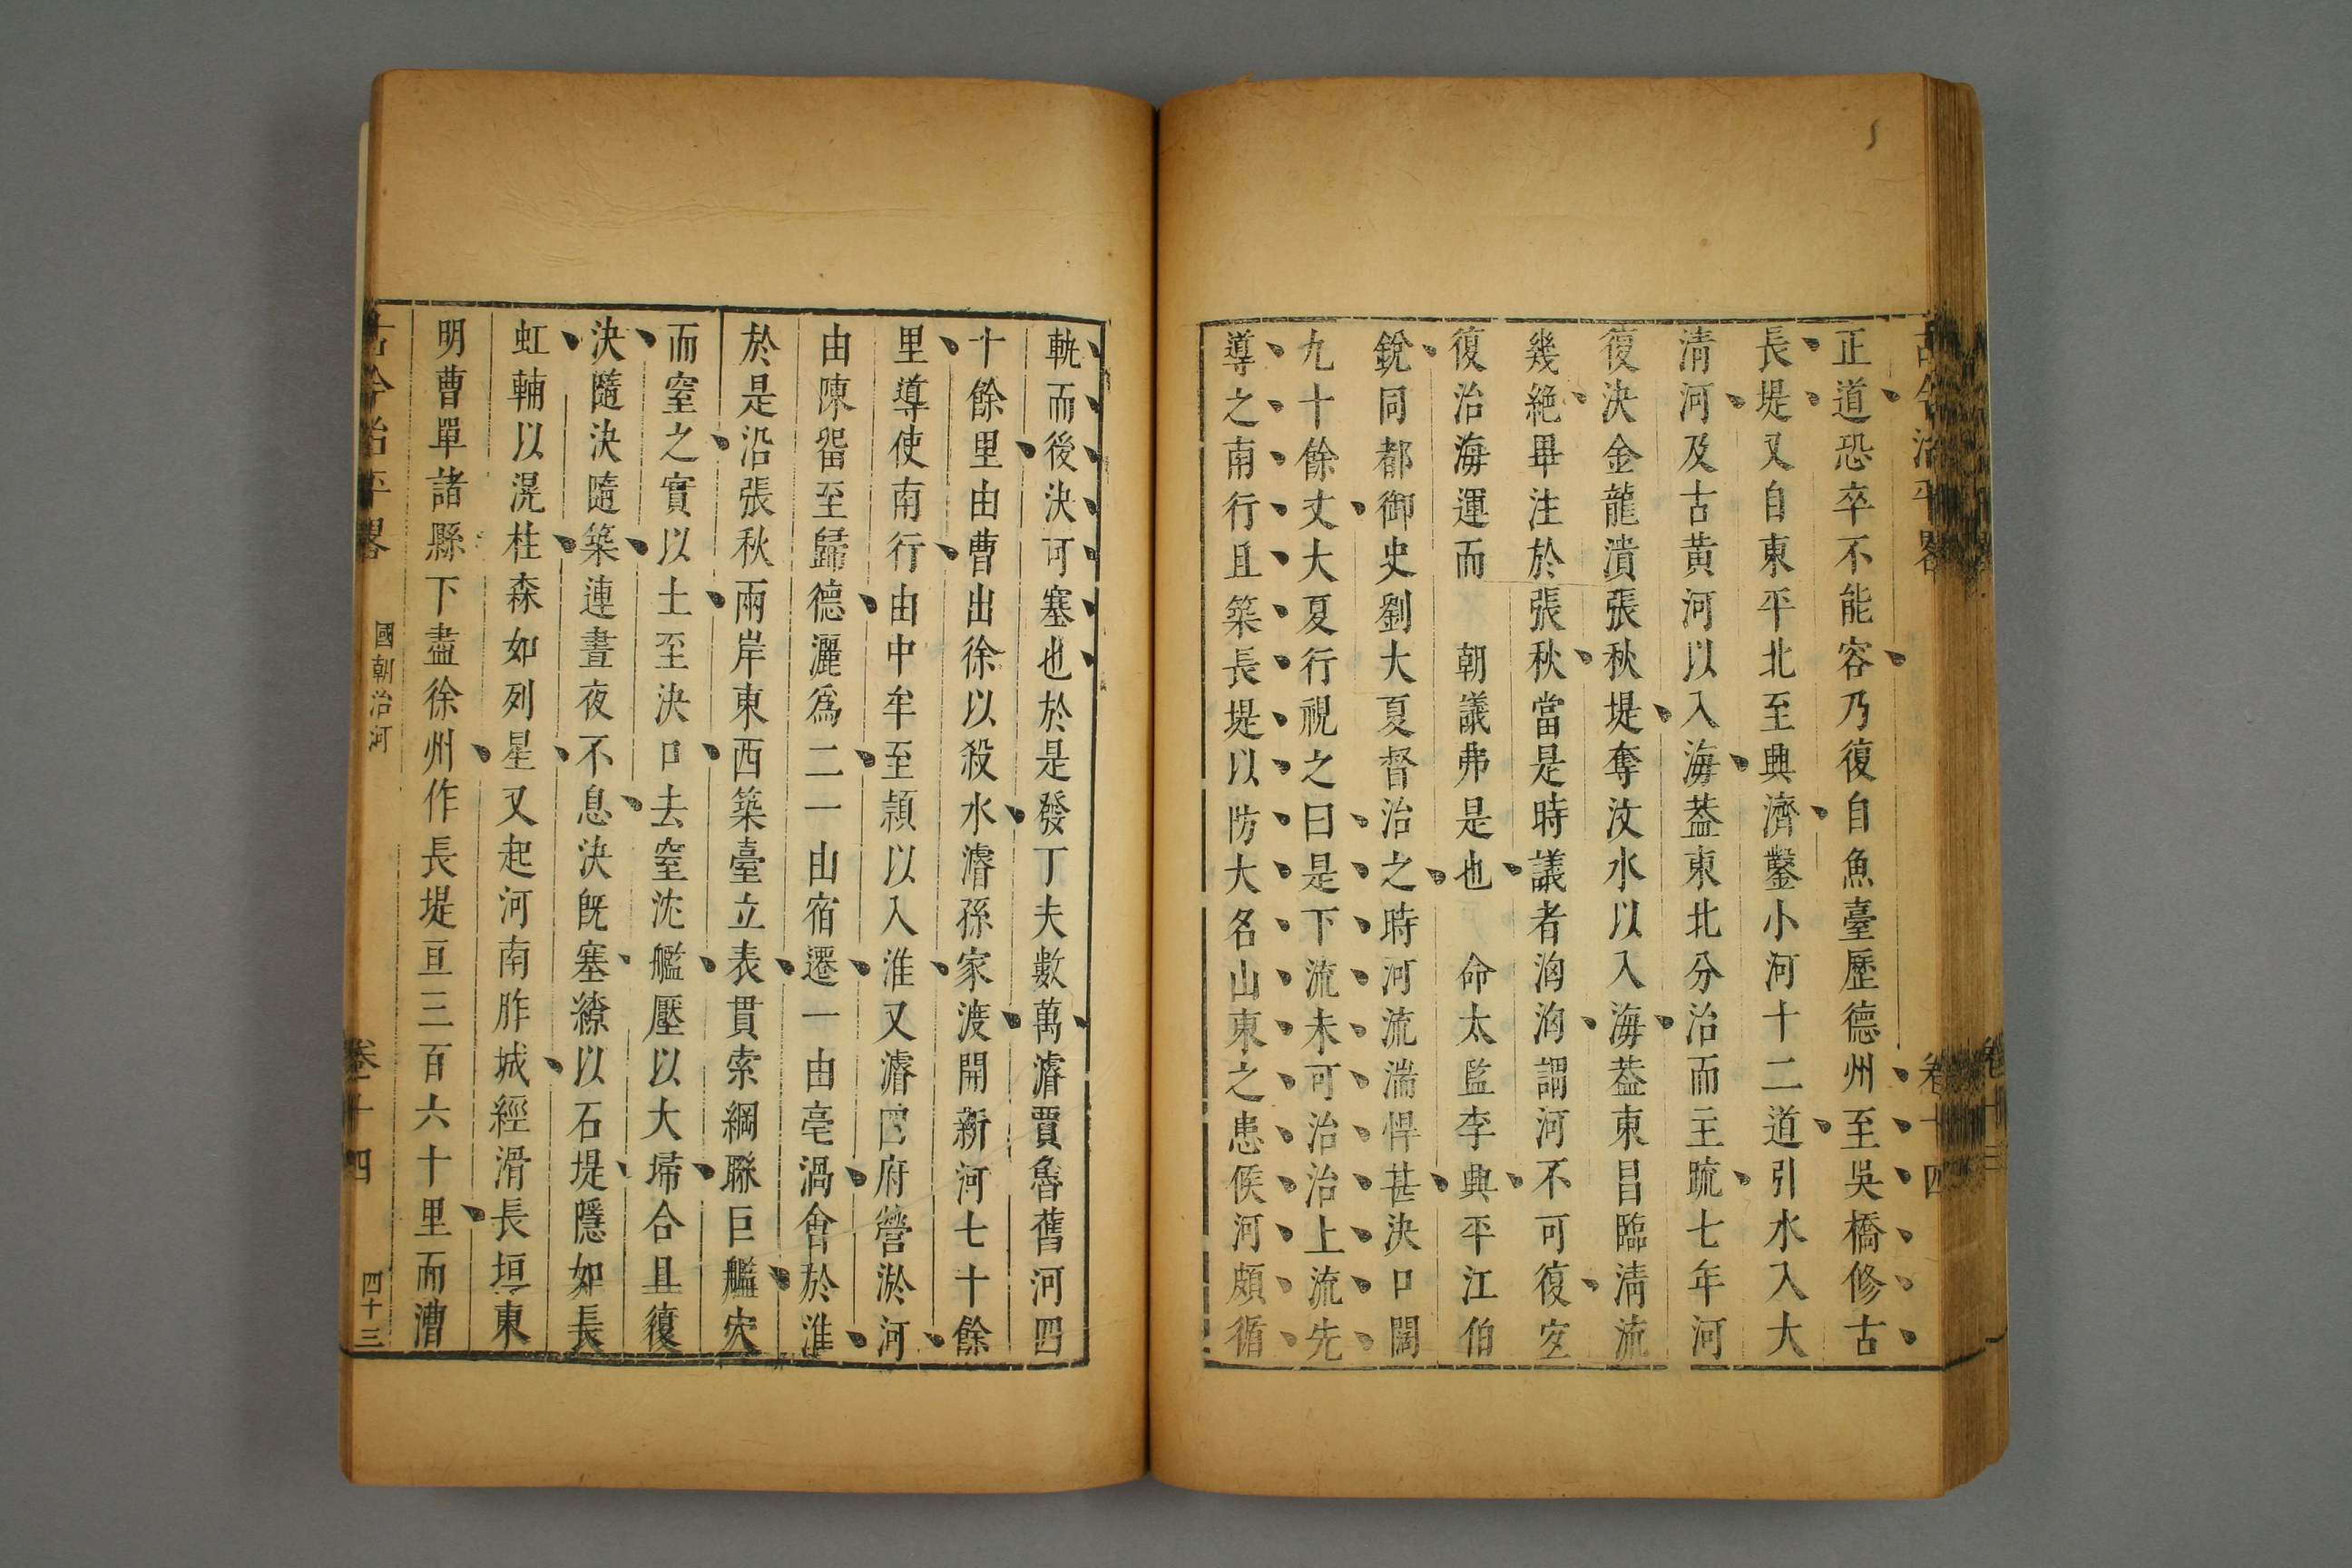 古今治平畧 卷十四
正道恐卒不能容乃復自魚臺歷德州至吳橋修古
長堤又自東平北至興濟鑿小河十二道引水入大
清河及古黃河以入海葢東北分治而主疏七年河
復決金龍潰張秋堤奪汶水以入海葢東昌臨清流
幾絶畢注於張秋當是時議者洶洶謂河不可復宐
復治海運而 朝議弗是也 命太監李興平江伯
銳同都御史劉大夏督治之時河流湍悍甚決口闊
九十餘丈大夏行視之曰是下流未可治治上流先
導之南行且築長堤以防大名山東之患候河頗循
軌而後決可塞也於是發丁夫數萬濬賈魯舊河四
十餘里由曹出徐以殺水濬孫家渡開新河七十餘
里導使南行由中牟至潁以入淮又濬府營淤河
由陳畱至歸德灑爲二一山宿遷一由亳渦會於淮
於是沿張秋兩岸東西築臺立表貫索綱聮巨艦穴
而窒之實以土至決口去窒沈艦壓以大埽合且復
決隨決隨築連晝夜不息決旣塞繚以石堤隱如長
虹輔以滉柱森如列星又起河南胙城經滑長垣東
明曹單諸縣下盡徐州作長堤亘三百六十里而漕
古今治平畧 國朝治河 卷十四 四十三